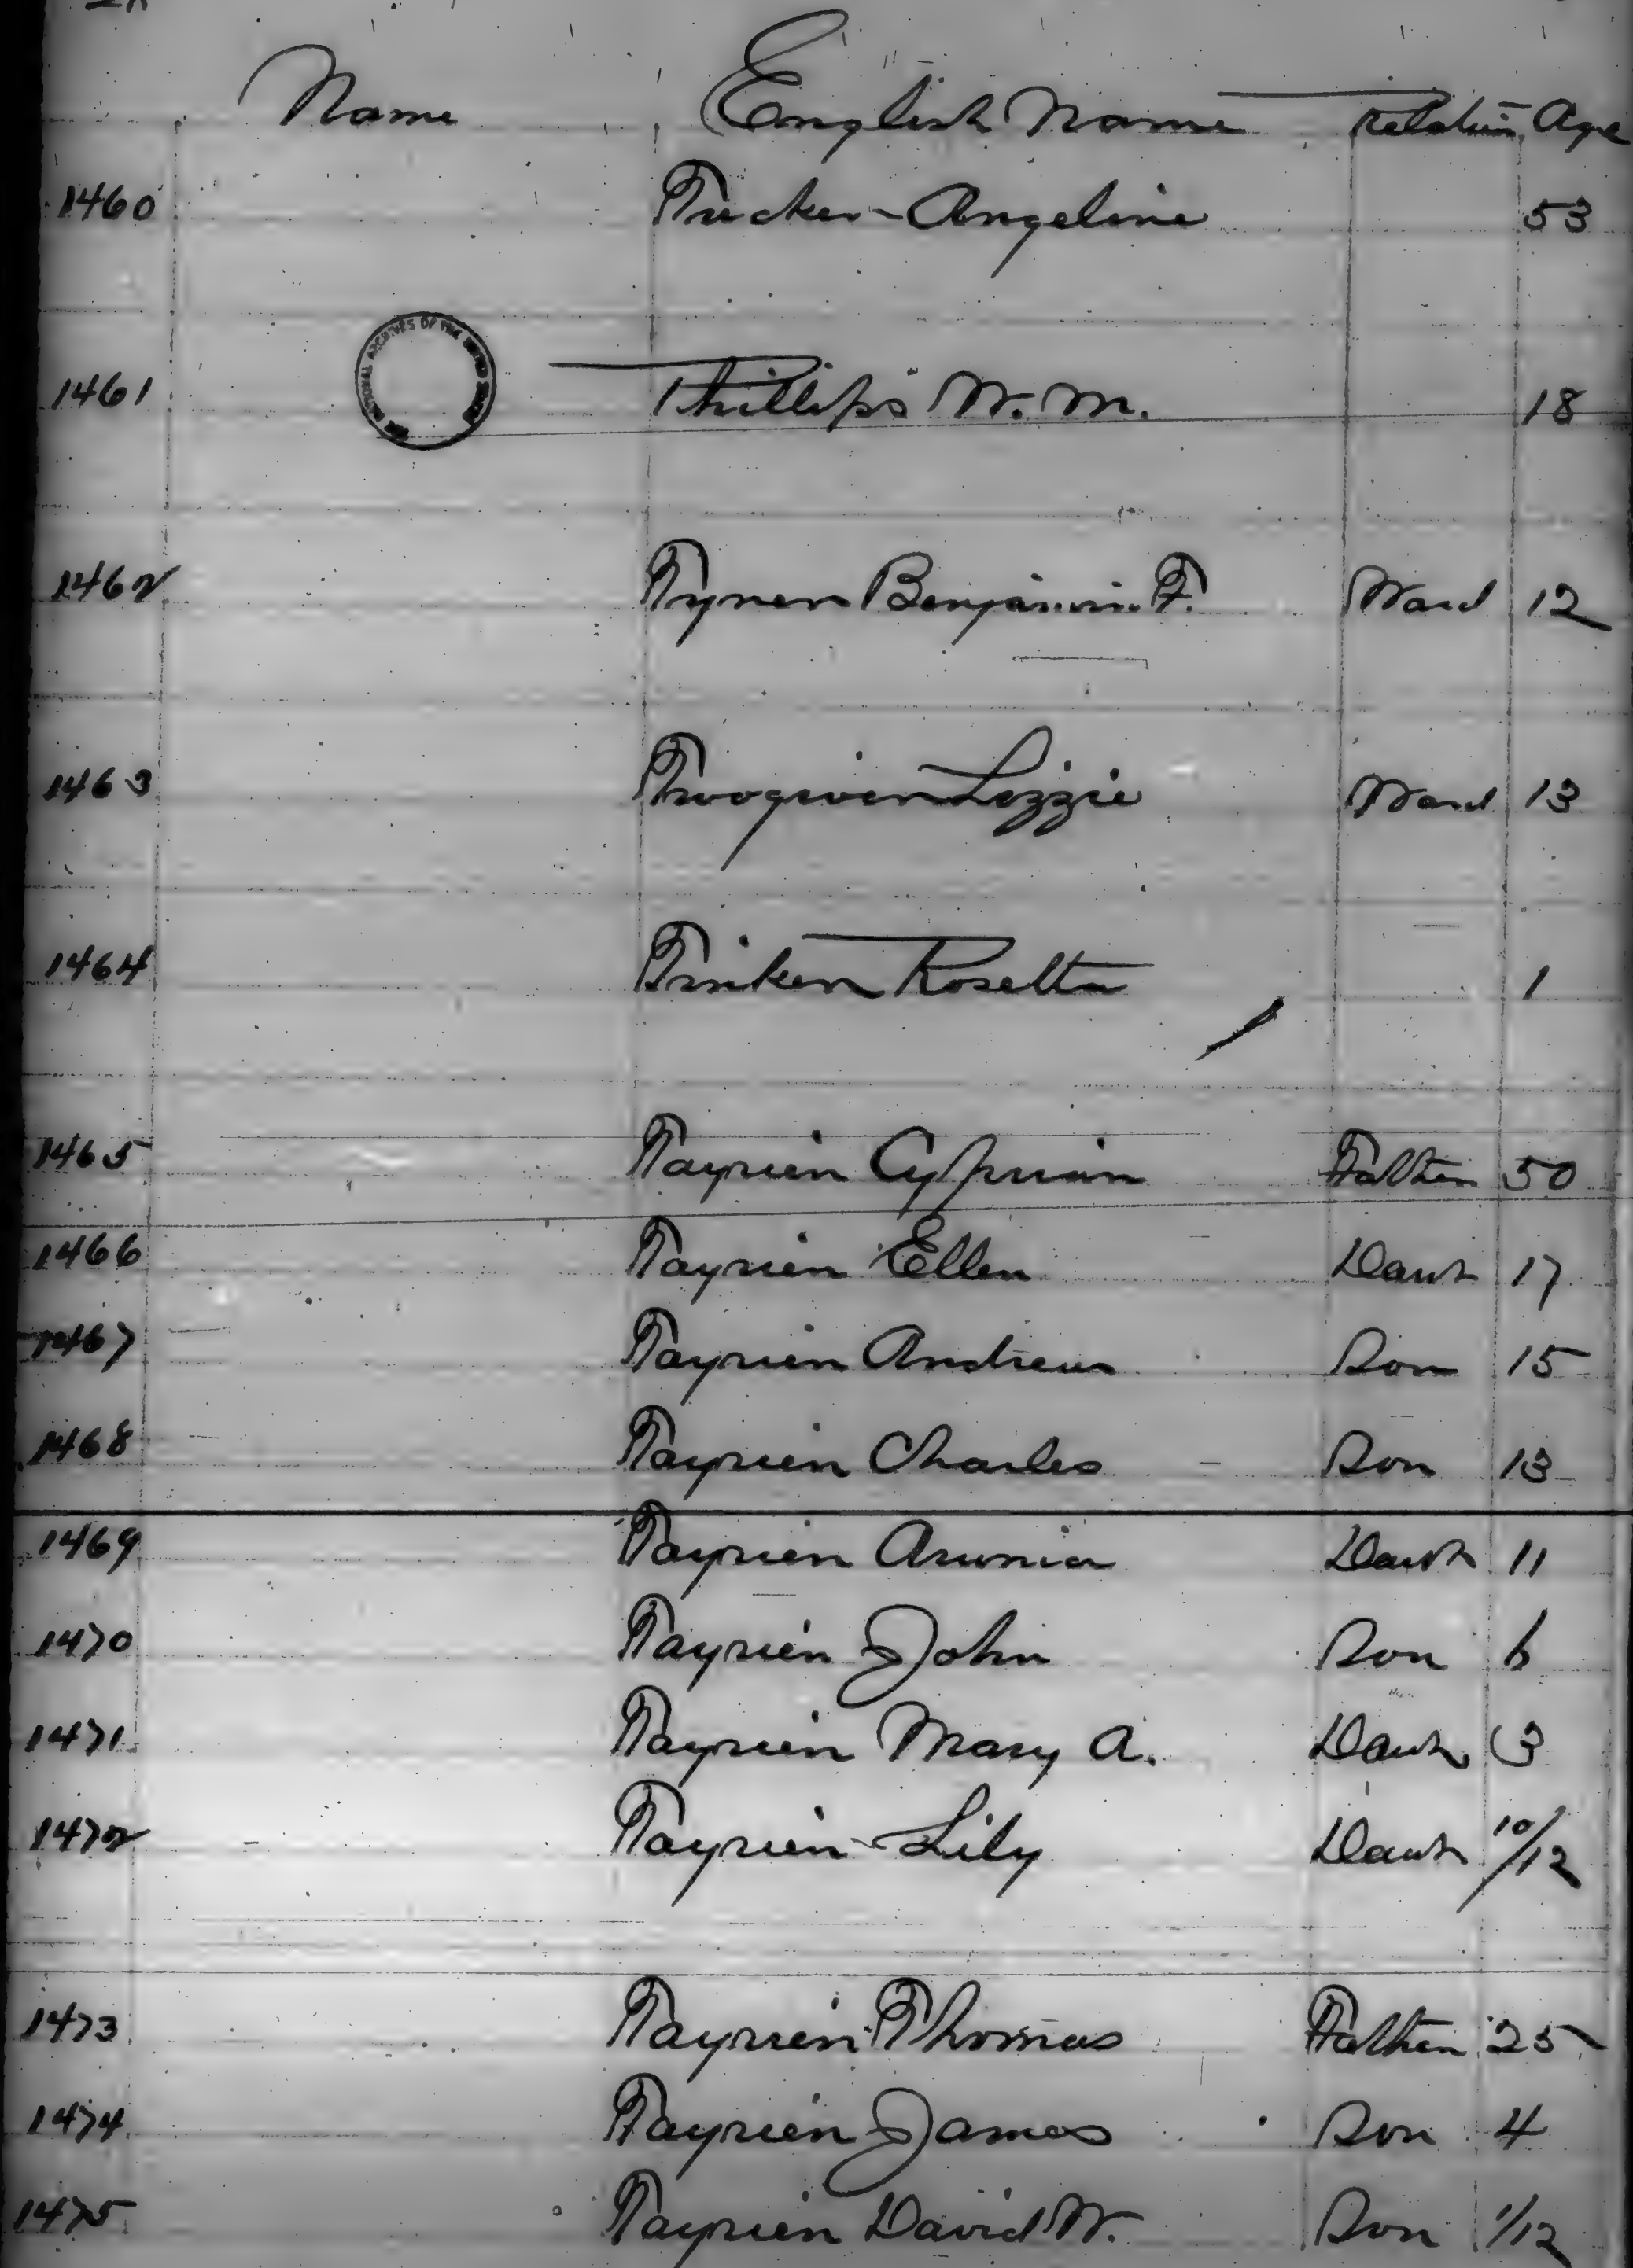 Name English Name Relation Age
1460 Tucker - Angeline 53
NATIONAL ARCHIVES OF THE UNITED STATES
1461 Phillips W. M. 18
1462 Tynen Benjamin F. Ward 12
1463 Lizzie Ward 13
1464 Tinken Rosetta 1
1465 Tayrien Cyprian Father 50
1466 Tayrien Ellen Daut 17
1467 Tayrien Andrew Son 15
1468 Tayrien Charles Son 13
1469 Tayrien Daut 11
1470 Tayrien John Son 6
1471 Tayrien Mary A. Daut 3
1472 Tayrien - Lily Daut 10/12
1473 Tayrien Thomas Father 25
1474 Tayrien James Son 4
1475 Tayrien David W. Son 1/12